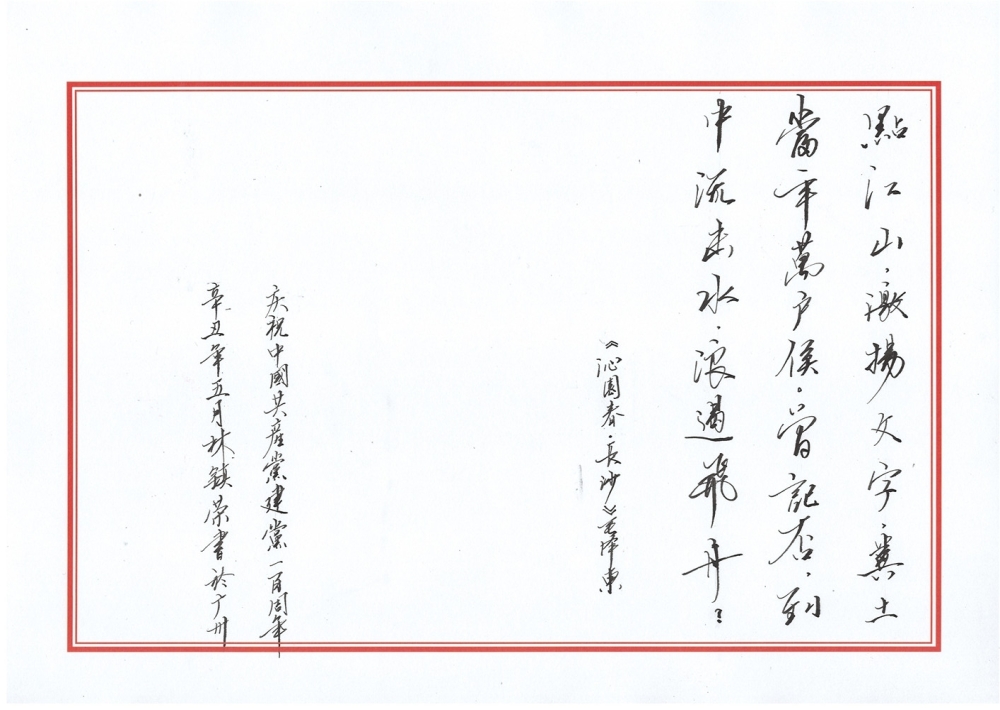 點江山，激揚文字，糞土
當年萬户侯。曾記否，到
中流击水，浪遏飛舟？
《沁園春·長沙》毛澤東
庆祝中國共產黨建黨一百周年
辛丑年五月林鎮荣書於广州